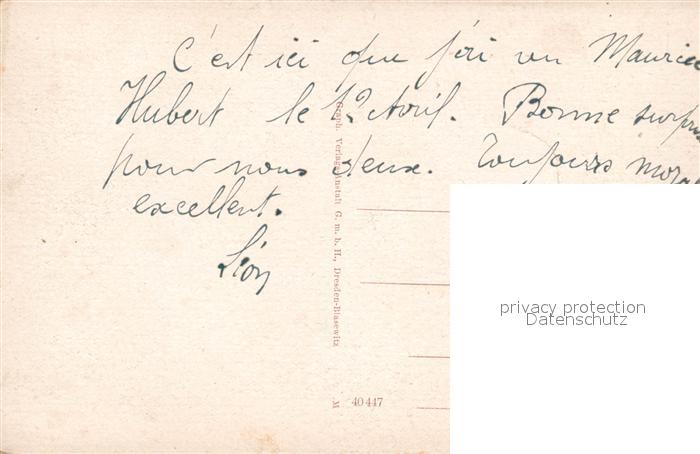 C'est ici que j'ai vu Maurice
Hubert le 12 Avril. Bonne surpri
pour nous deux. Toujours moral
excellent.
Léon
Graph. Verlagsanstalt G. m. b. H., Dresden-Blasewitz
M 40447
privacy protection
Datenschutz